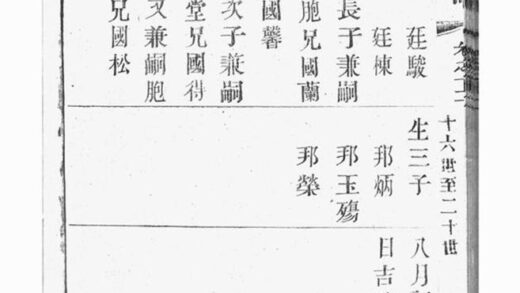 十六世至二十世
廷駿
廷棟
長子兼嗣
胞兄國蘭
國馨
次子兼嗣
堂兄國得
又兼嗣胞
兄國松
生三子
邦炳
邦玉殤
邦榮
八月
日吉